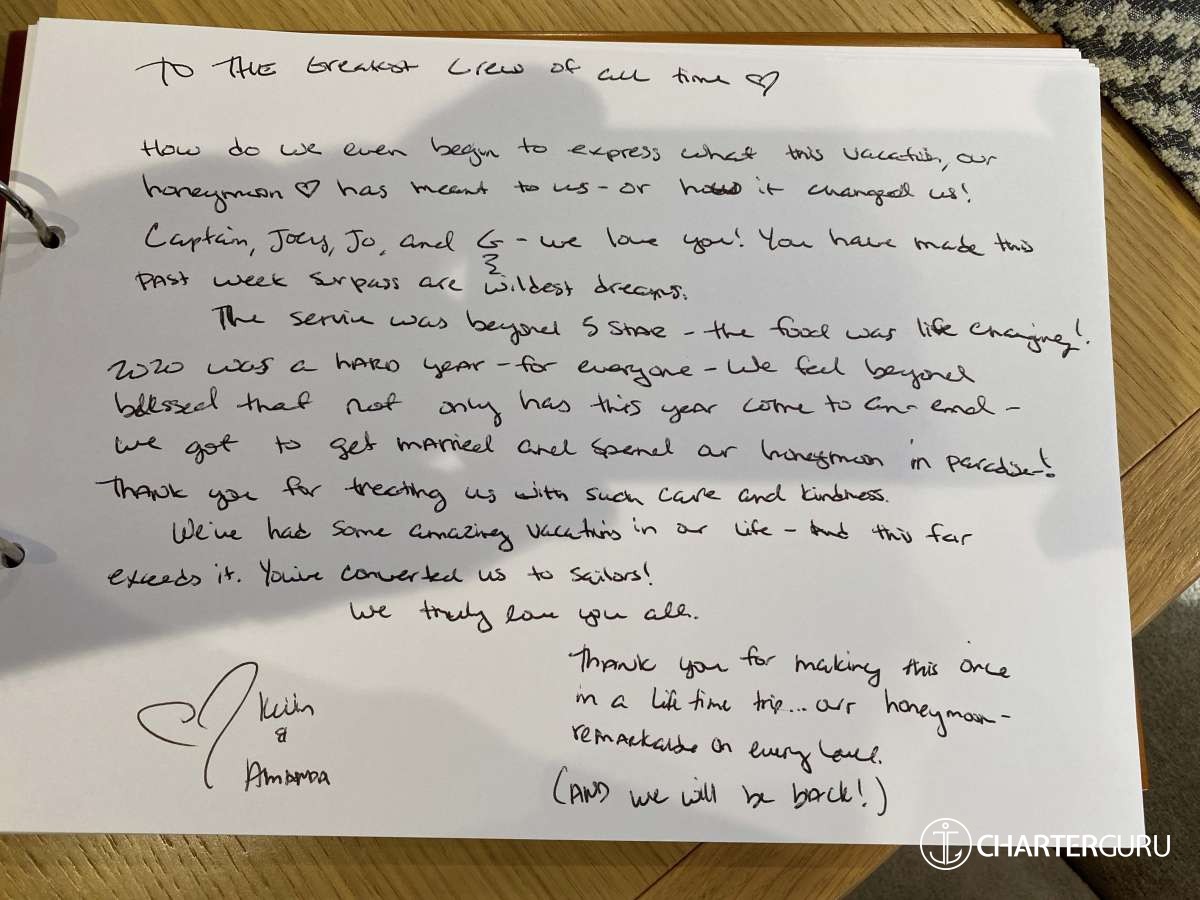 TO THE Greatest Crew of all time ♡
How do we even begin to express what this vacation, our
honeymoon ♡ has meant to us - or how it changed us!
Captain, Joey, Jo, and G - we love you! You have made this
past week surpass are wildest dreams.
The service was beyond 5 star - the food was life changing!
2020 was a hard year - for everyone - We feel beyond
blessed that not only has this year come to an end -
we got to get married and spend our honeymoon in paradise!
Thank you for treating us with such care and kindness.
We've had some amazing vacations in our life - And this far
exceeds it. You've converted us to sailors!
We truly love you all.
Thank you for making this once
in a life time trip... our honeymoon -
remarkable on every level.
(AND we will be back!)
♡ Kevin
&
Amanda
CHARTERGURU